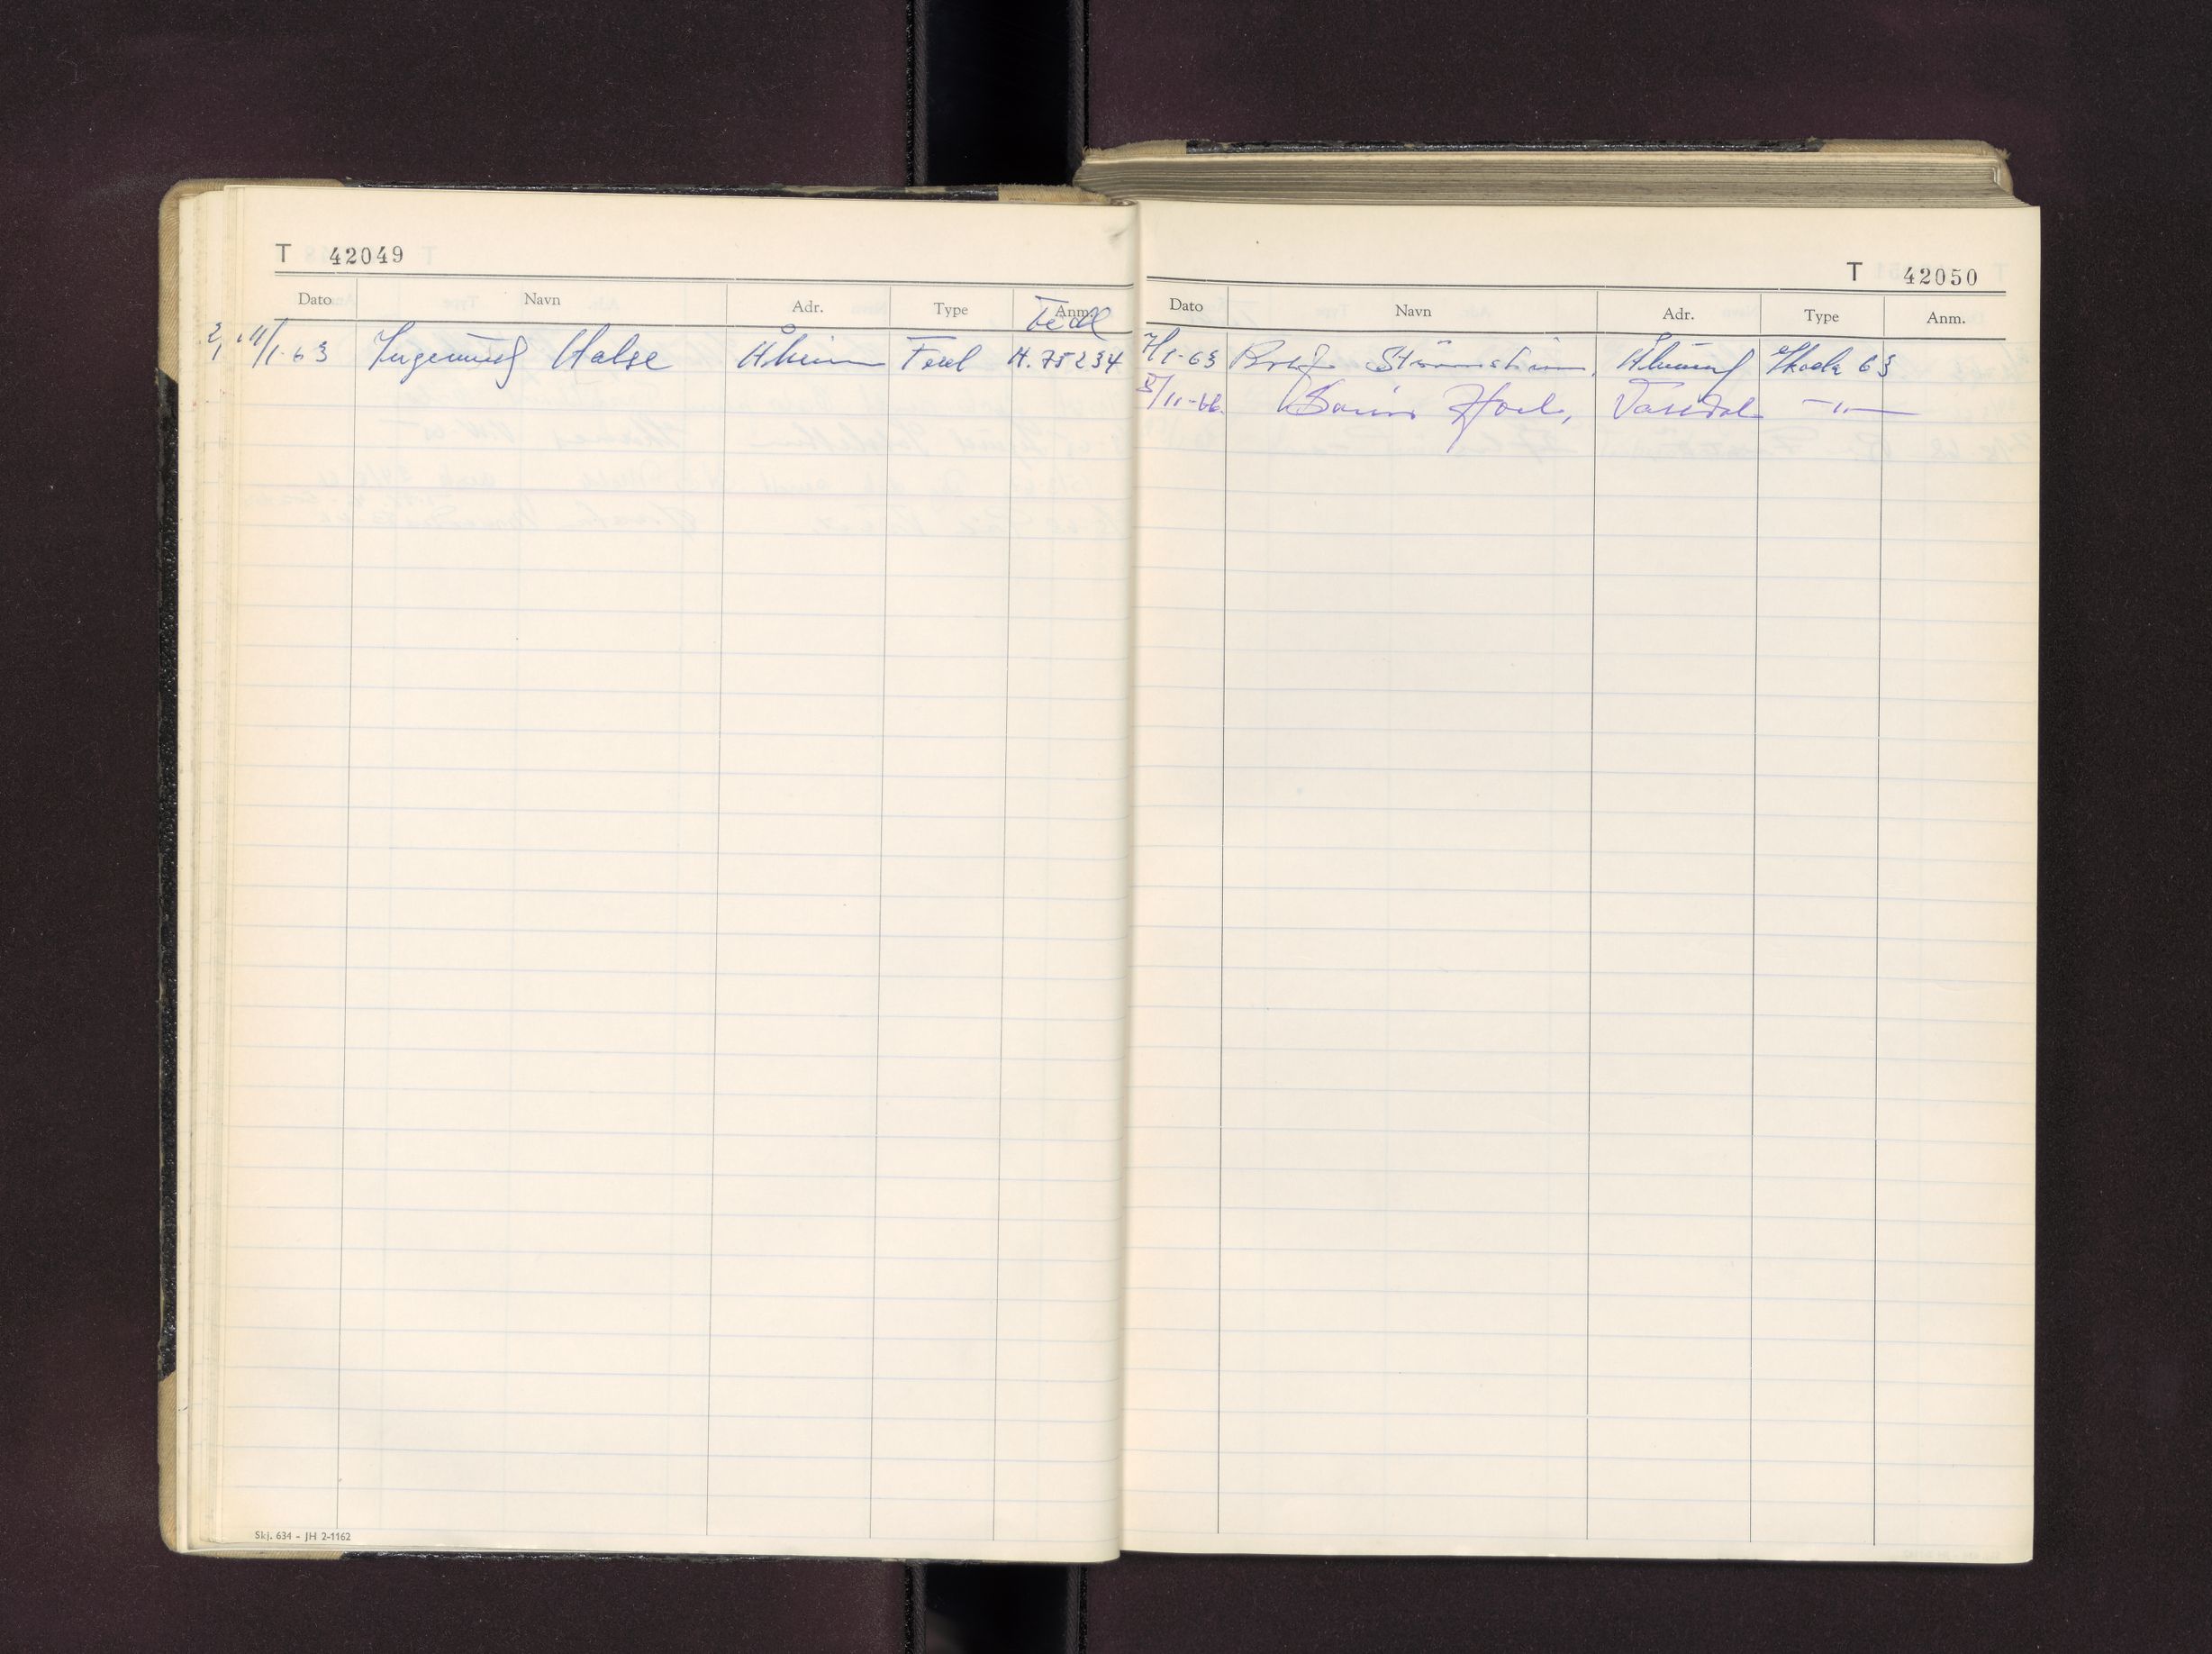 T 42049
Dato Navn Adr. Type Anm.
11/1-63 Ingemund Halse Åheim Ford H. 75234
Skj. 634 - JH 2-1162
T 42050
Dato Navn Adr. Type Anm.
7/1-63 Rolf Åheim Skoda 63
5/11-66. -"-